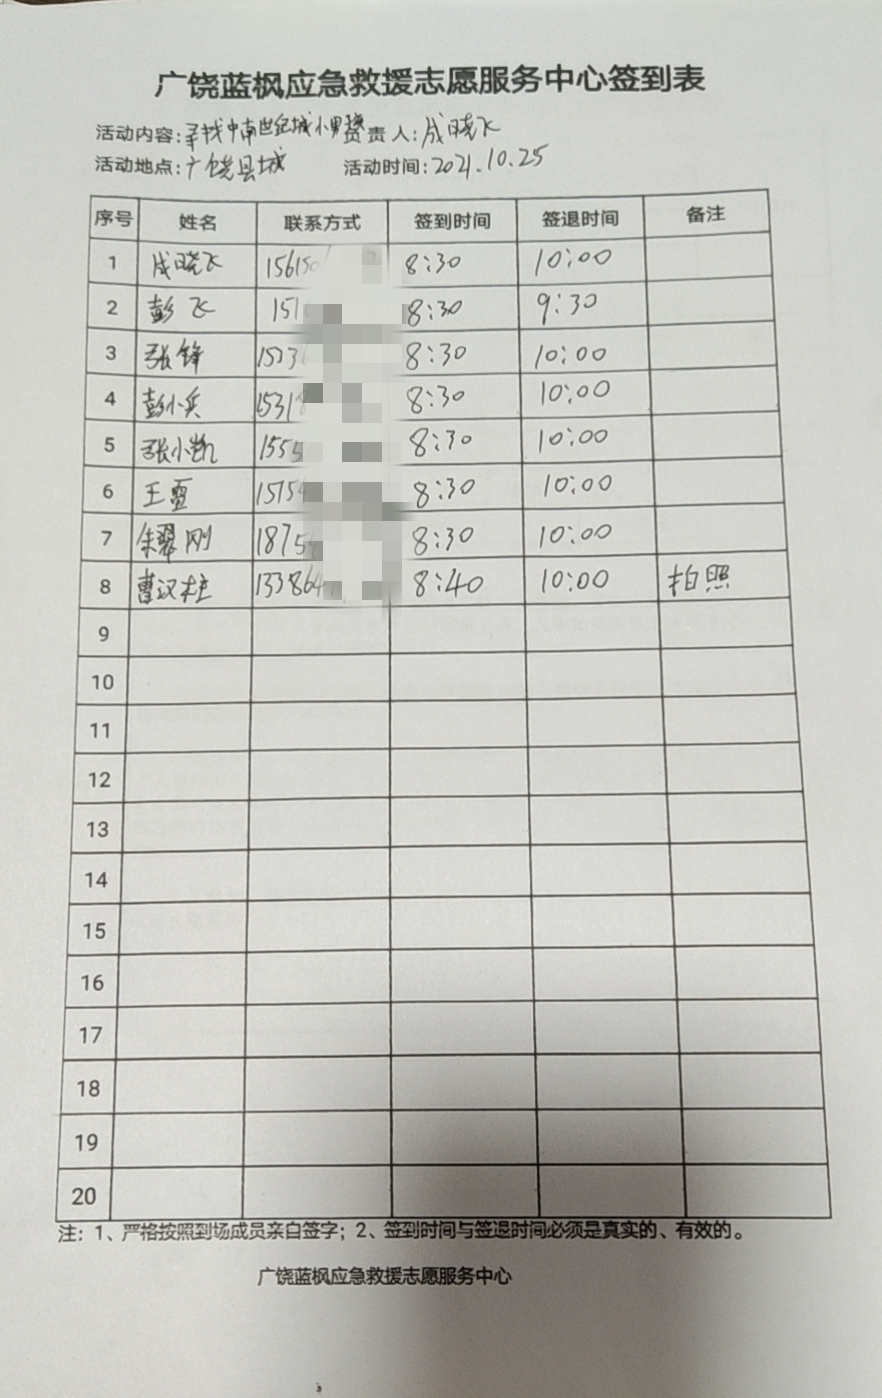 广饶蓝枫应急救援志愿服务中心签到表
活动内容:寻找中南世纪城小男孩 负责人:成晓飞
活动地点:广饶县城 活动时间:2021.10.25
序号 姓名 联系方式 签到时间 签退时间 备注
1 成晓飞 15615 8:30 10:00
2 彭飞 151 8:30 9:30
3 张锋 1523 8:30 10:00
4 彭小兵 1531 8:30 10:00
5 张小凯 155 8:30 10:00
6 王雷 1515 8:30 10:00
7 朱翠刚 1875 8:30 10:00
8 曹汉柱 133864 8:40 10:00 拍照
9
10
11
12
13
14
15
16
17
18
19
20
注：1、严格按照到场成员亲自签字；2、签到时间与签退时间必须是真实的、有效的。
广饶蓝枫应急救援志愿服务中心